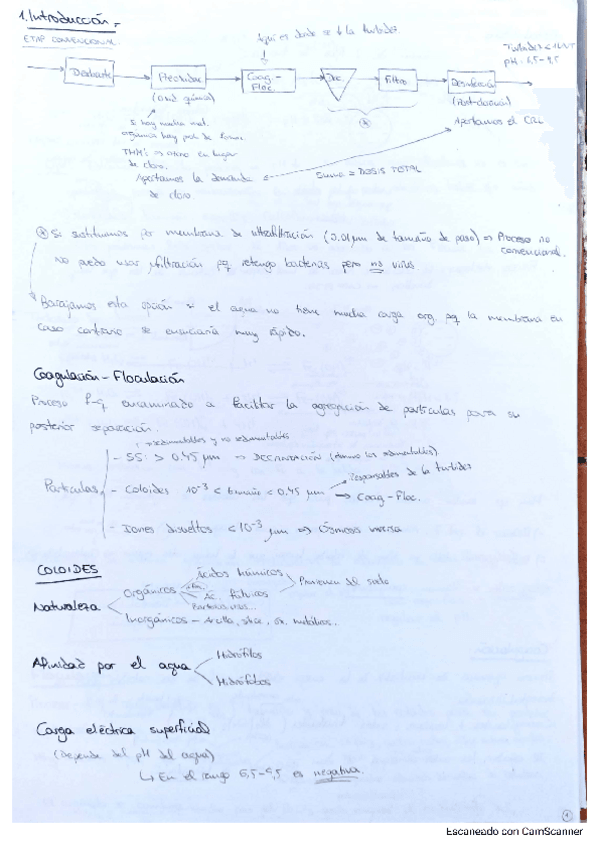 1. Introducción.-
ETAP CONVENCIONAL
Aquí es donde se the la turbidez.
Turbidez < 1UNT
pH: 6,5-9,5
Desbaste
Preoxidac
Coag-
Floc.
Dec.
Filtro
Desinfección
(Oxid. química)
(Post-cloración)
Si hay mucha mat.
orgánica hay prob. de formar
THM's => otro en lugar
de cloro.
Aportamos el CRL
Aportamos la demanda
de cloro
Suma = DOSIS TOTAL
Si sustituimos por membrana de ultrafiltración (0.01 µm de tamaño de paso) => Proceso no
convencional.
No puedo usar µfiltración pq. retengo bacterias pero no virus
Barajamos esta opción si el agua no tiene mucha carga org. pq la membrana en
caso contrario se ensuciaría muy rápido.
Coagulación-Floculación
Proceso f-q. encaminado a facilitar la agregación de partículas para su
posterior separación.
sedimentables y no sedimentables
Partículas
- SS: > 0.45 µm => DECANTACIÓN (elimino las sedimentables)
Responsables de la turbidez
- Coloides 10⁻³ < tamaño < 0.45 µm → Coag-Floc.
- Iones disueltos < 10⁻³ µm => Ósmosis inversa
COLOIDES
Naturaleza
Orgánicos
Ácidos húmicos
Ác. fúlvicos
Provienen del suelo
Bacterias, virus...
Inorgánicos - Arcilla, sílice, óx. metálicos.
Afinidad por el agua
Hidrófilos
Hidrófobos
Carga eléctrica superficial
(Depende del pH del agua)
↳ En el rango 6,5-9,5 es negativa.
1
Escaneado con CamScanner